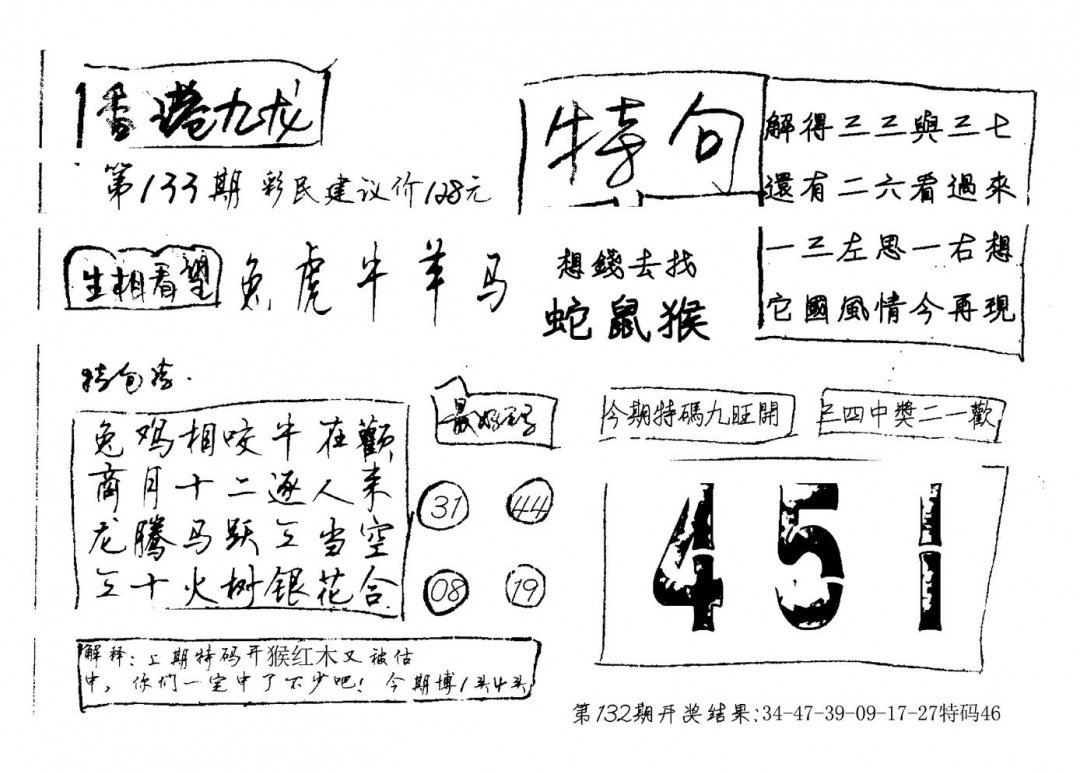 香港九龙
第133期 彩民建议价128元
特句
解得三三與三七
還有二六看過來
一三左思一右想
它國風情今再現
生相看望
兔虎牛羊马
想錢去找
蛇鼠猴
特包
兔鸡相咬牛在
商月十二逐人来
龙腾马跃当空
十火树银花合
31 44
08 19
今期特碼九旺開
三四中獎二一歡
451
解释:上期特码开猴红木又被估
中,你们一定中了不少吧!今期博1头4头
第132期开奖结果:34-47-39-09-17-27特码46